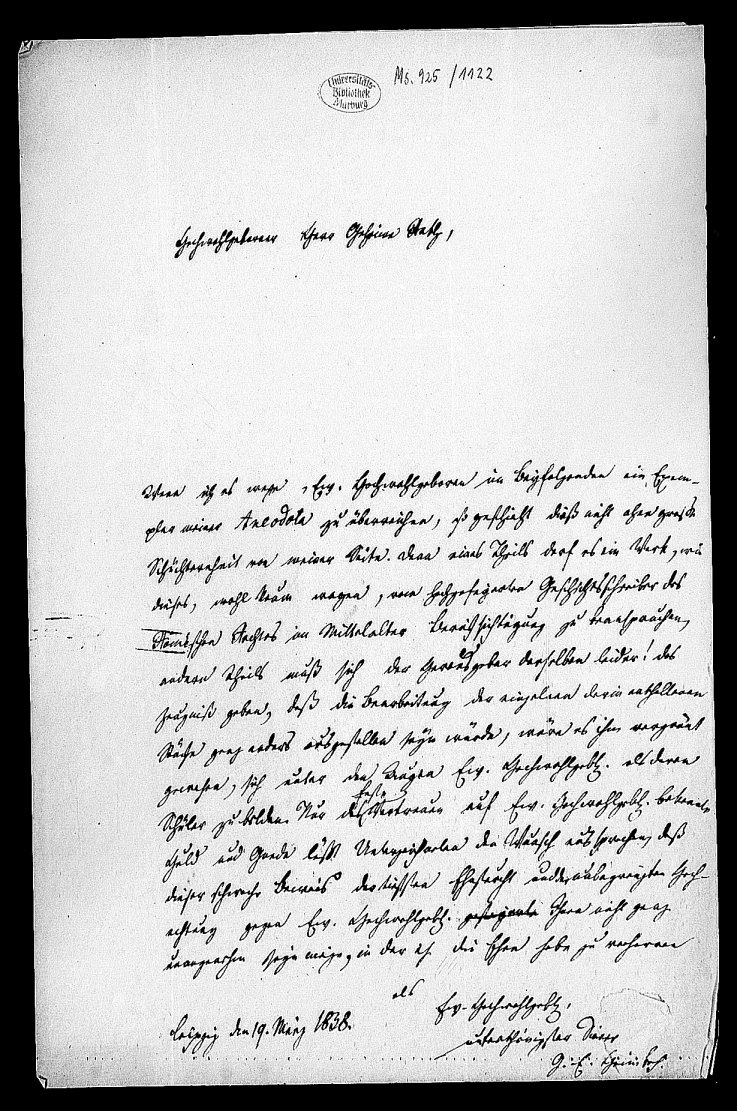 Universitäts-
Bibliothek
Marburg
Ms. 925/1122
Hochwohlgeborner Herr Geheime Rath,
Wenn ich es wage, Ew. Hochwohlgeboren im Beyfolgenden ein Exem-
plar meiner Anecdota zu überreichen, so geschieht dieß nicht ohne große
Schüchternheit von meiner Seite. Denn eines Theils darf es ein Werk, wie
dieses, wohl kaum wagen, vom Geschichtsschreiber des
Römischen Rechtes im Mittelalter Berücksichtigung zu beanspruchen,
andern Theils muß sich der Herausgeber derselben leider! das
Zeugniß geben, daß die Bearbeitung der einzelnen darin enthaltenen
Stücke ganz anders ausgefallen seyn würde, wäre es ihm vergönnt
gewesen, sich unter den Augen Ew. Hochwohlgeb. als deren
Schüler zu bilden. Nur das feste Vertrauen auf Ew. Hochwohlgeb. bekannte
Huld und Güte läßt Unterzeichneten den Wunsch aussprechen, daß
dieser schwache Beweis der tiefsten Ehrfurcht und der unbegrenzten Hoch-
achtung gegen Ew. Hochwohlgeb. Ihnen nicht ganz
unangenehm seyn möge, in der ich die Ehre habe zu verharren
als
Ew. Hochwohlgeb.
Leipzig den 19. März 1838.
unterthänigster Diener
G. E. Heimbach.